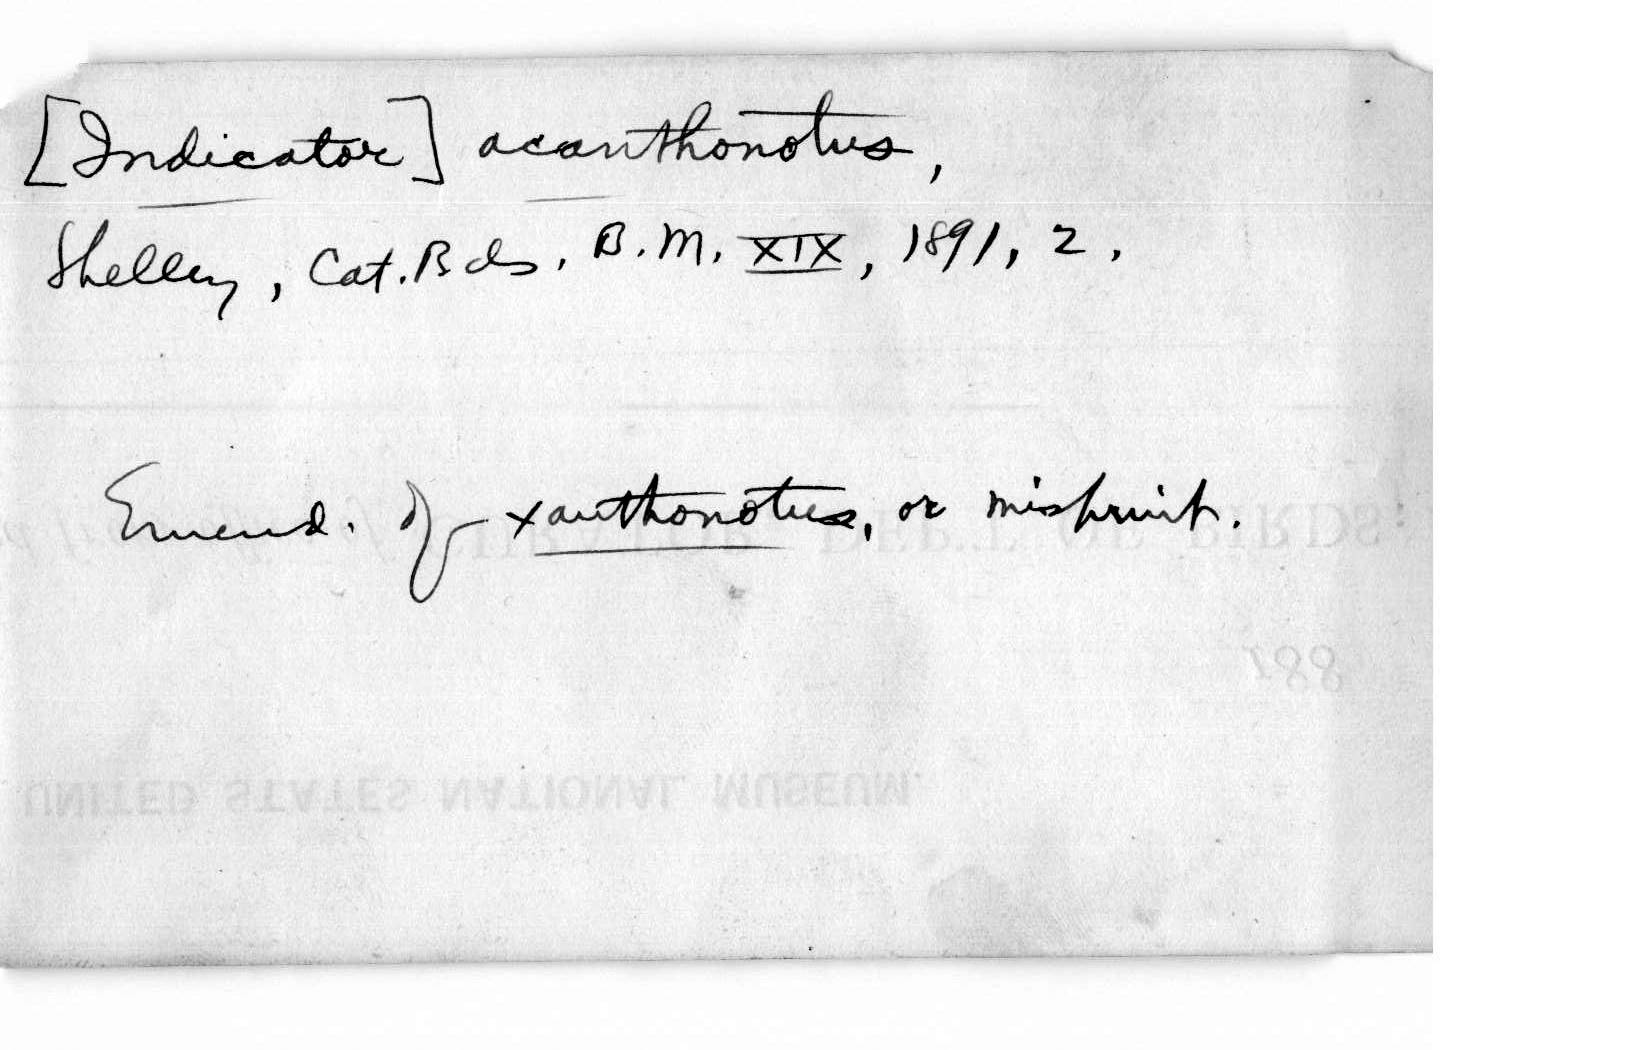 [Indicator] acanthonotus,
Shelley, Cat. Bds. B.M. XIX, 1891, 2.
Emend. of xanthonotus, or misprint.
CURATOR DEPT. OF BIRDS
188
UNITED STATES NATIONAL MUSEUM.